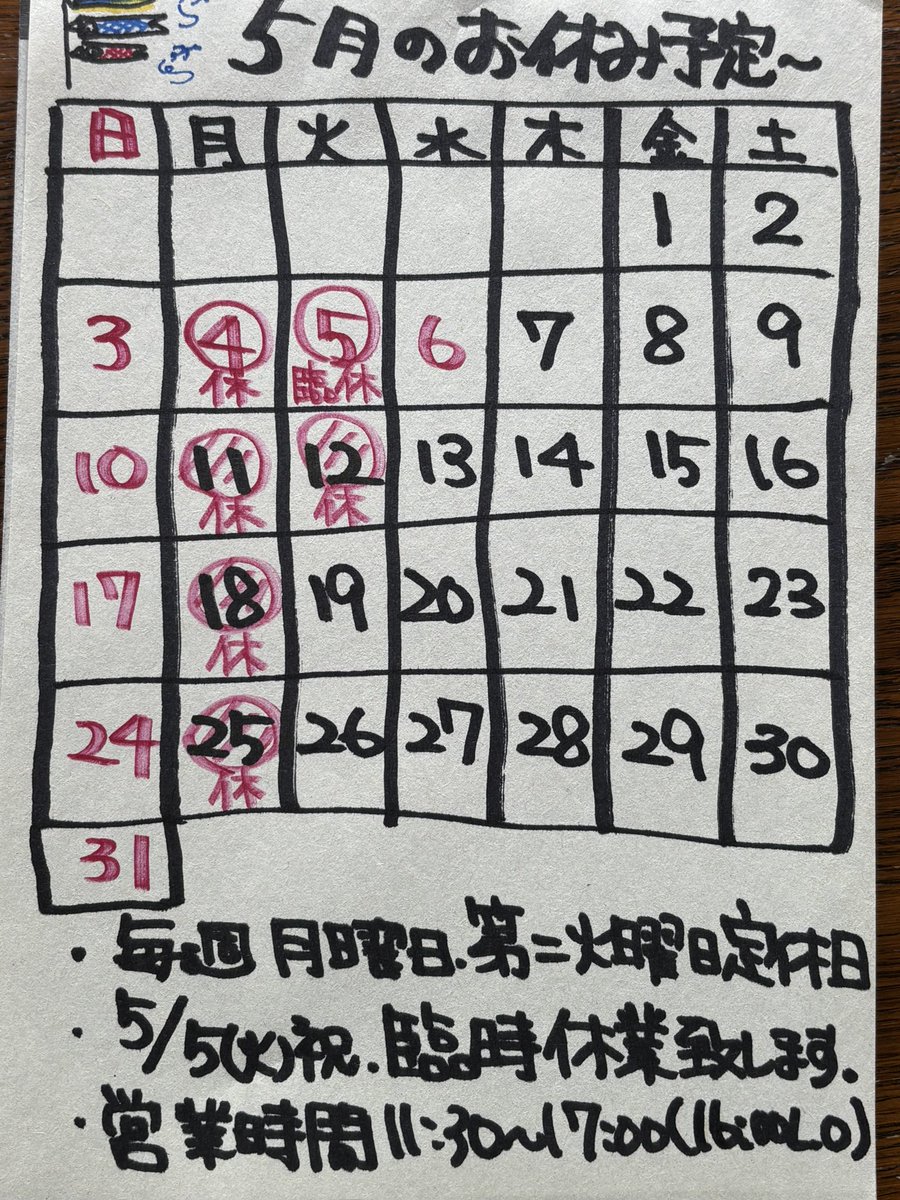 5月のお休み予定~
日 月 火 水 木 金 土
1 2
3 4 5 6 7 8 9
休 臨時休
10 11 12 13 14 15 16
休 休
17 18 19 20 21 22 23
休
24 25 26 27 28 29 30
休
31
・毎週月曜日.第二火曜日定休日
・5/5(火)祝.臨時休業致します.
・営業時間11:30~17:00(16:00LO)